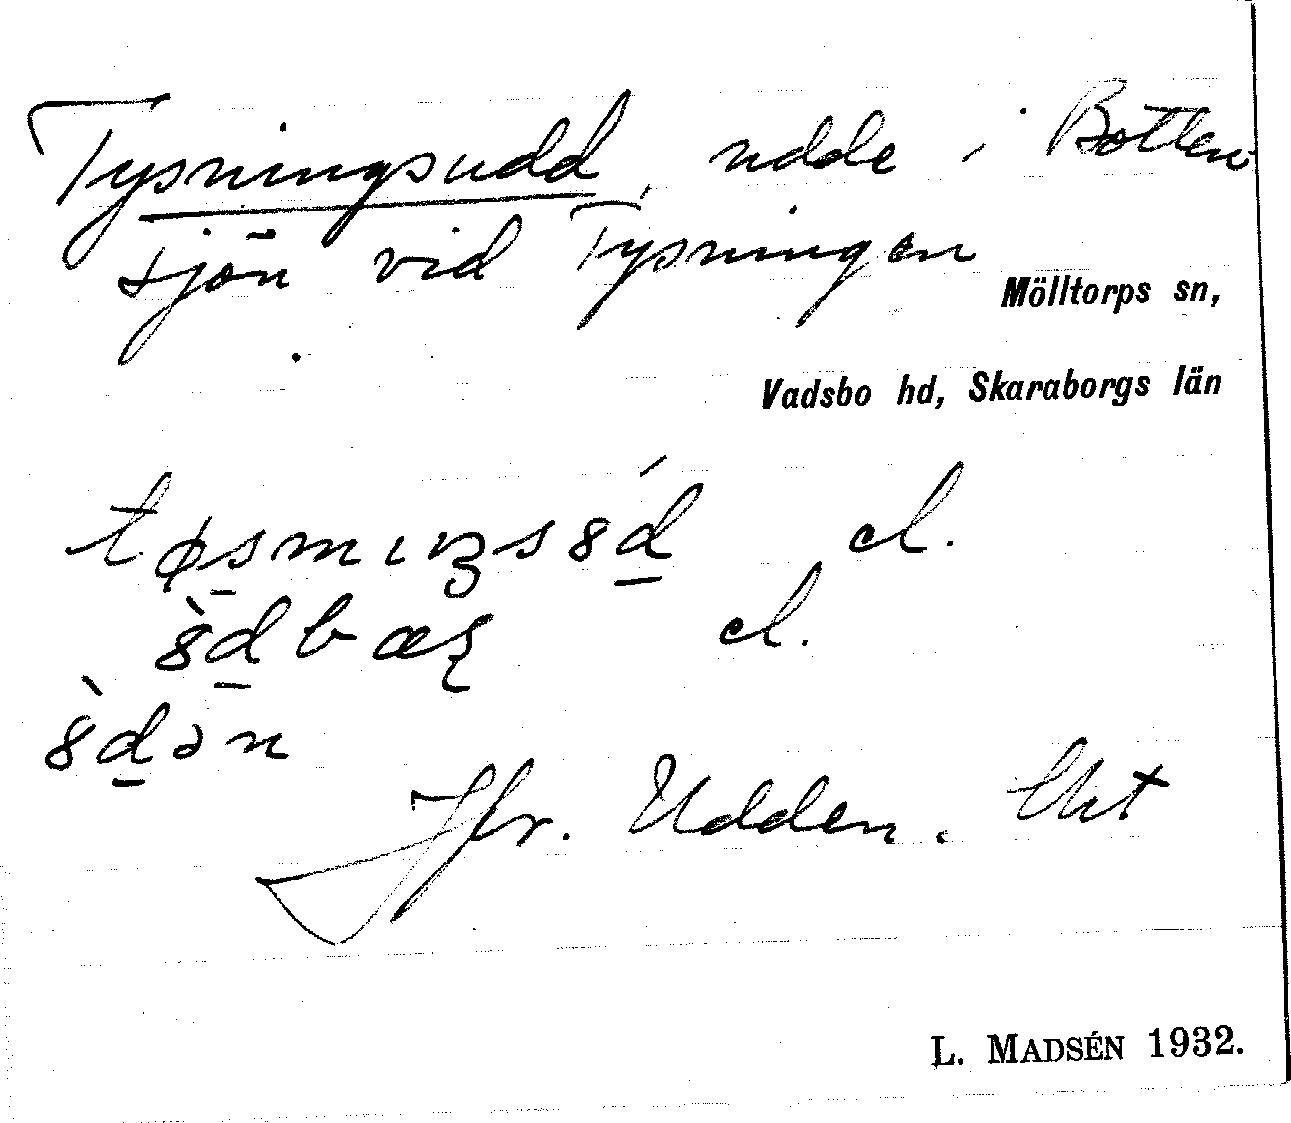 Tysningsudd, udde i Botten-
sjön vid Tysningen
Mölltorps sn,
Vadsbo hd, Skaraborgs län
el.
el.
Jfr. Udden. Ekt
L. MADSÉN 1932.